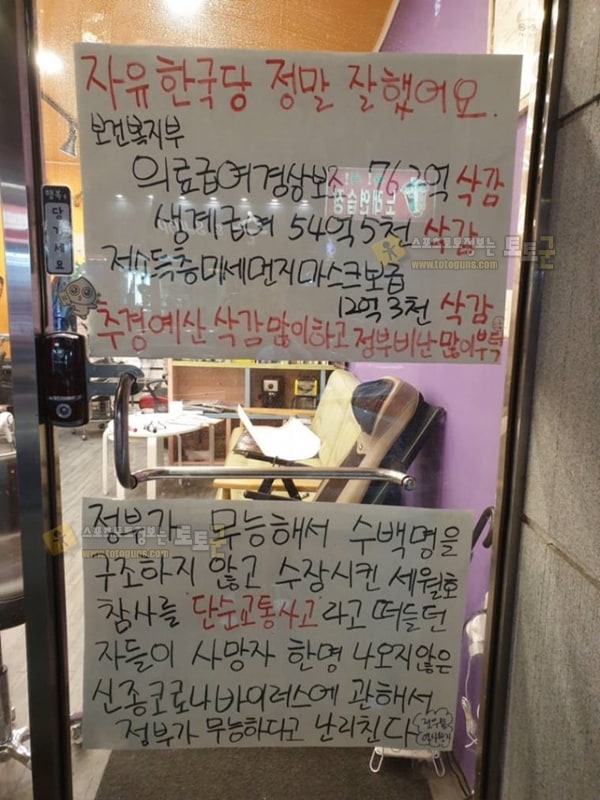 자유한국당 정말 잘했어요.
보건복지부
의료급여경상보조 762억 삭감
생계급여 54억5천 삭감
저소득층미세먼지마스크보급
12억3천 삭감
추경예산 삭감많이하고 정부비난많이부탁
행복
닫기세요
노래연습장
스포츠토토정보는 토토군
www.totoguns.com
정부가 무능해서 수백명을
구조하지 않고 수장시킨 세월호
참사를 단순교통사고 라고 떠들던
자들이 사망자 한명 나오지않은
신종코로나바이러스에 관해서
정부가 무능하다고 난리친다
스포츠토토정보는 토토군
www.totoguns.com